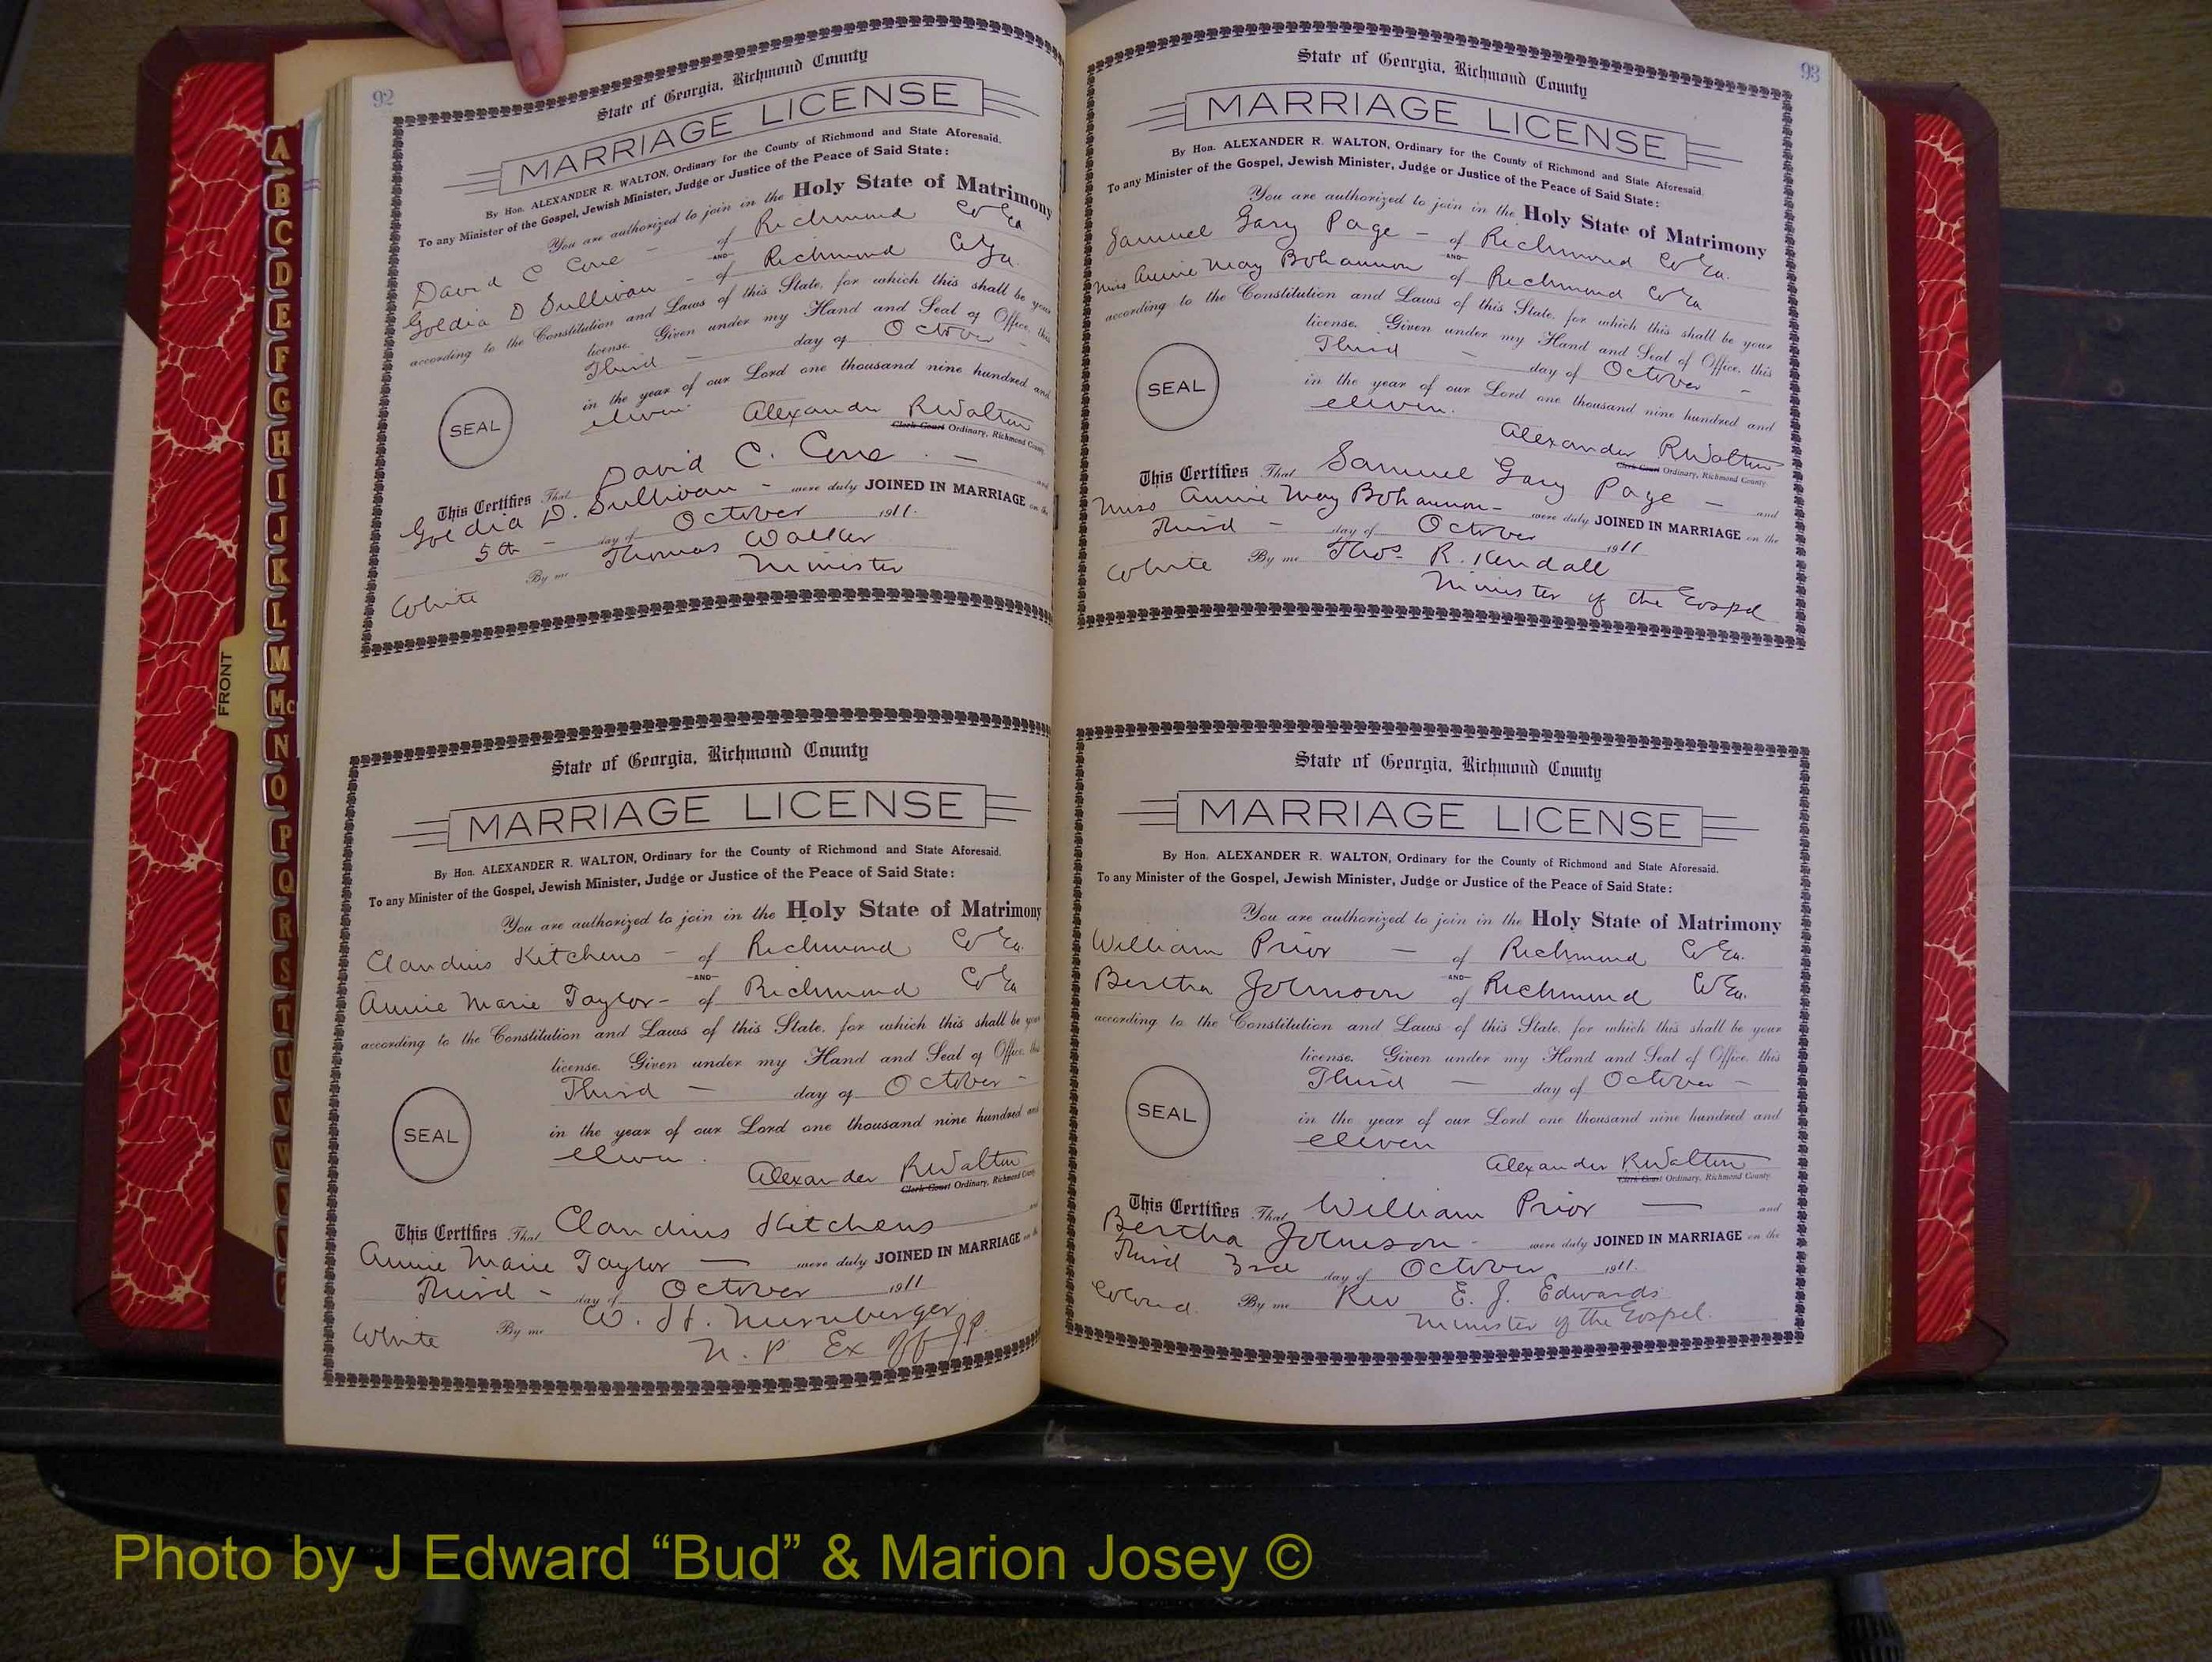 92
State of Georgia, Richmond County
MARRIAGE LICENSE
By Hon. ALEXANDER R. WALTON, Ordinary for the County of Richmond and State Aforesaid.
To any Minister of the Gospel, Jewish Minister, Judge or Justice of the Peace of Said State:
You are authorized to join in the Holy State of Matrimony
David C Cone - of Richmond Co Ga
-AND-
Goldia D Sullivan - of Richmond Co Ga.
according to the Constitution and Laws of this State, for which this shall be your
license. Given under my Hand and Seal of Office, this
Third - day of October -
in the year of our Lord one thousand nine hundred and
eleven. Alexander R Walton
SEAL
Clerk Court Ordinary, Richmond County.
This Certifies That David C. Cone - and
Goldia D. Sullivan - were duly JOINED IN MARRIAGE on the
5th - day of October 1911.
By me Thomas Walker
Minister
White
State of Georgia, Richmond County
MARRIAGE LICENSE
By Hon. ALEXANDER R. WALTON, Ordinary for the County of Richmond and State Aforesaid.
To any Minister of the Gospel, Jewish Minister, Judge or Justice of the Peace of Said State:
You are authorized to join in the Holy State of Matrimony
Claudius Kitchens - of Richmond Co Ga.
-AND-
Annie Marie Taylor - of Richmond Co Ga
according to the Constitution and Laws of this State, for which this shall be your
license. Given under my Hand and Seal of Office, this
Third - day of October -
SEAL
in the year of our Lord one thousand nine hundred and
eleven. Alexander R Walton
Clerk Court Ordinary, Richmond County
This Certifies That Claudius Kitchens and
Annie Marie Taylor - were duly JOINED IN MARRIAGE on the
Third - day of October 1911
White By me W. H. Nurnberger
N. P. Ex Off J.P.
93
State of Georgia, Richmond County
MARRIAGE LICENSE
By Hon. ALEXANDER R. WALTON, Ordinary for the County of Richmond and State Aforesaid.
To any Minister of the Gospel, Jewish Minister, Judge or Justice of the Peace of Said State:
You are authorized to join in the Holy State of Matrimony
Samuel Gary Page - of Richmond Co Ga.
-AND-
Miss Annie May Bohannon of Richmond Co Ga
according to the Constitution and Laws of this State, for which this shall be your
license. Given under my Hand and Seal of Office, this
Third - day of October -
SEAL
in the year of our Lord one thousand nine hundred and
eleven.
Alexander R Walton
Clerk Court Ordinary, Richmond County.
This Certifies That Samuel Gary Page - and
Miss Annie May Bohannon - were duly JOINED IN MARRIAGE on the
Third - day of October 1911
White By me Thos. R. Kendall
Minister of the Gospel
State of Georgia, Richmond County
MARRIAGE LICENSE
By Hon. ALEXANDER R. WALTON, Ordinary for the County of Richmond and State Aforesaid.
To any Minister of the Gospel, Jewish Minister, Judge or Justice of the Peace of Said State:
You are authorized to join in the Holy State of Matrimony
William Prior - of Richmond Co Ga.
-AND-
Bertha Johnson of Richmond Co Ga.
according to the Constitution and Laws of this State, for which this shall be your
license. Given under my Hand and Seal of Office, this
Third - day of October -
SEAL
in the year of our Lord one thousand nine hundred and
eleven
Alexander R Walton
Clerk Court Ordinary, Richmond County
This Certifies That William Prior - and
Bertha Johnson - were duly JOINED IN MARRIAGE on the
Third 3rd day of October 1911.
Colored. By me Rev E. J. Edwards
Minister of the Gospel.
FRONT
A
B
C
D
E
F
G
H
I
J
K
L
M
Mc
N
O
P
Q
R
S
T
U
V
W
Photo by J Edward “Bud” & Marion Josey ©